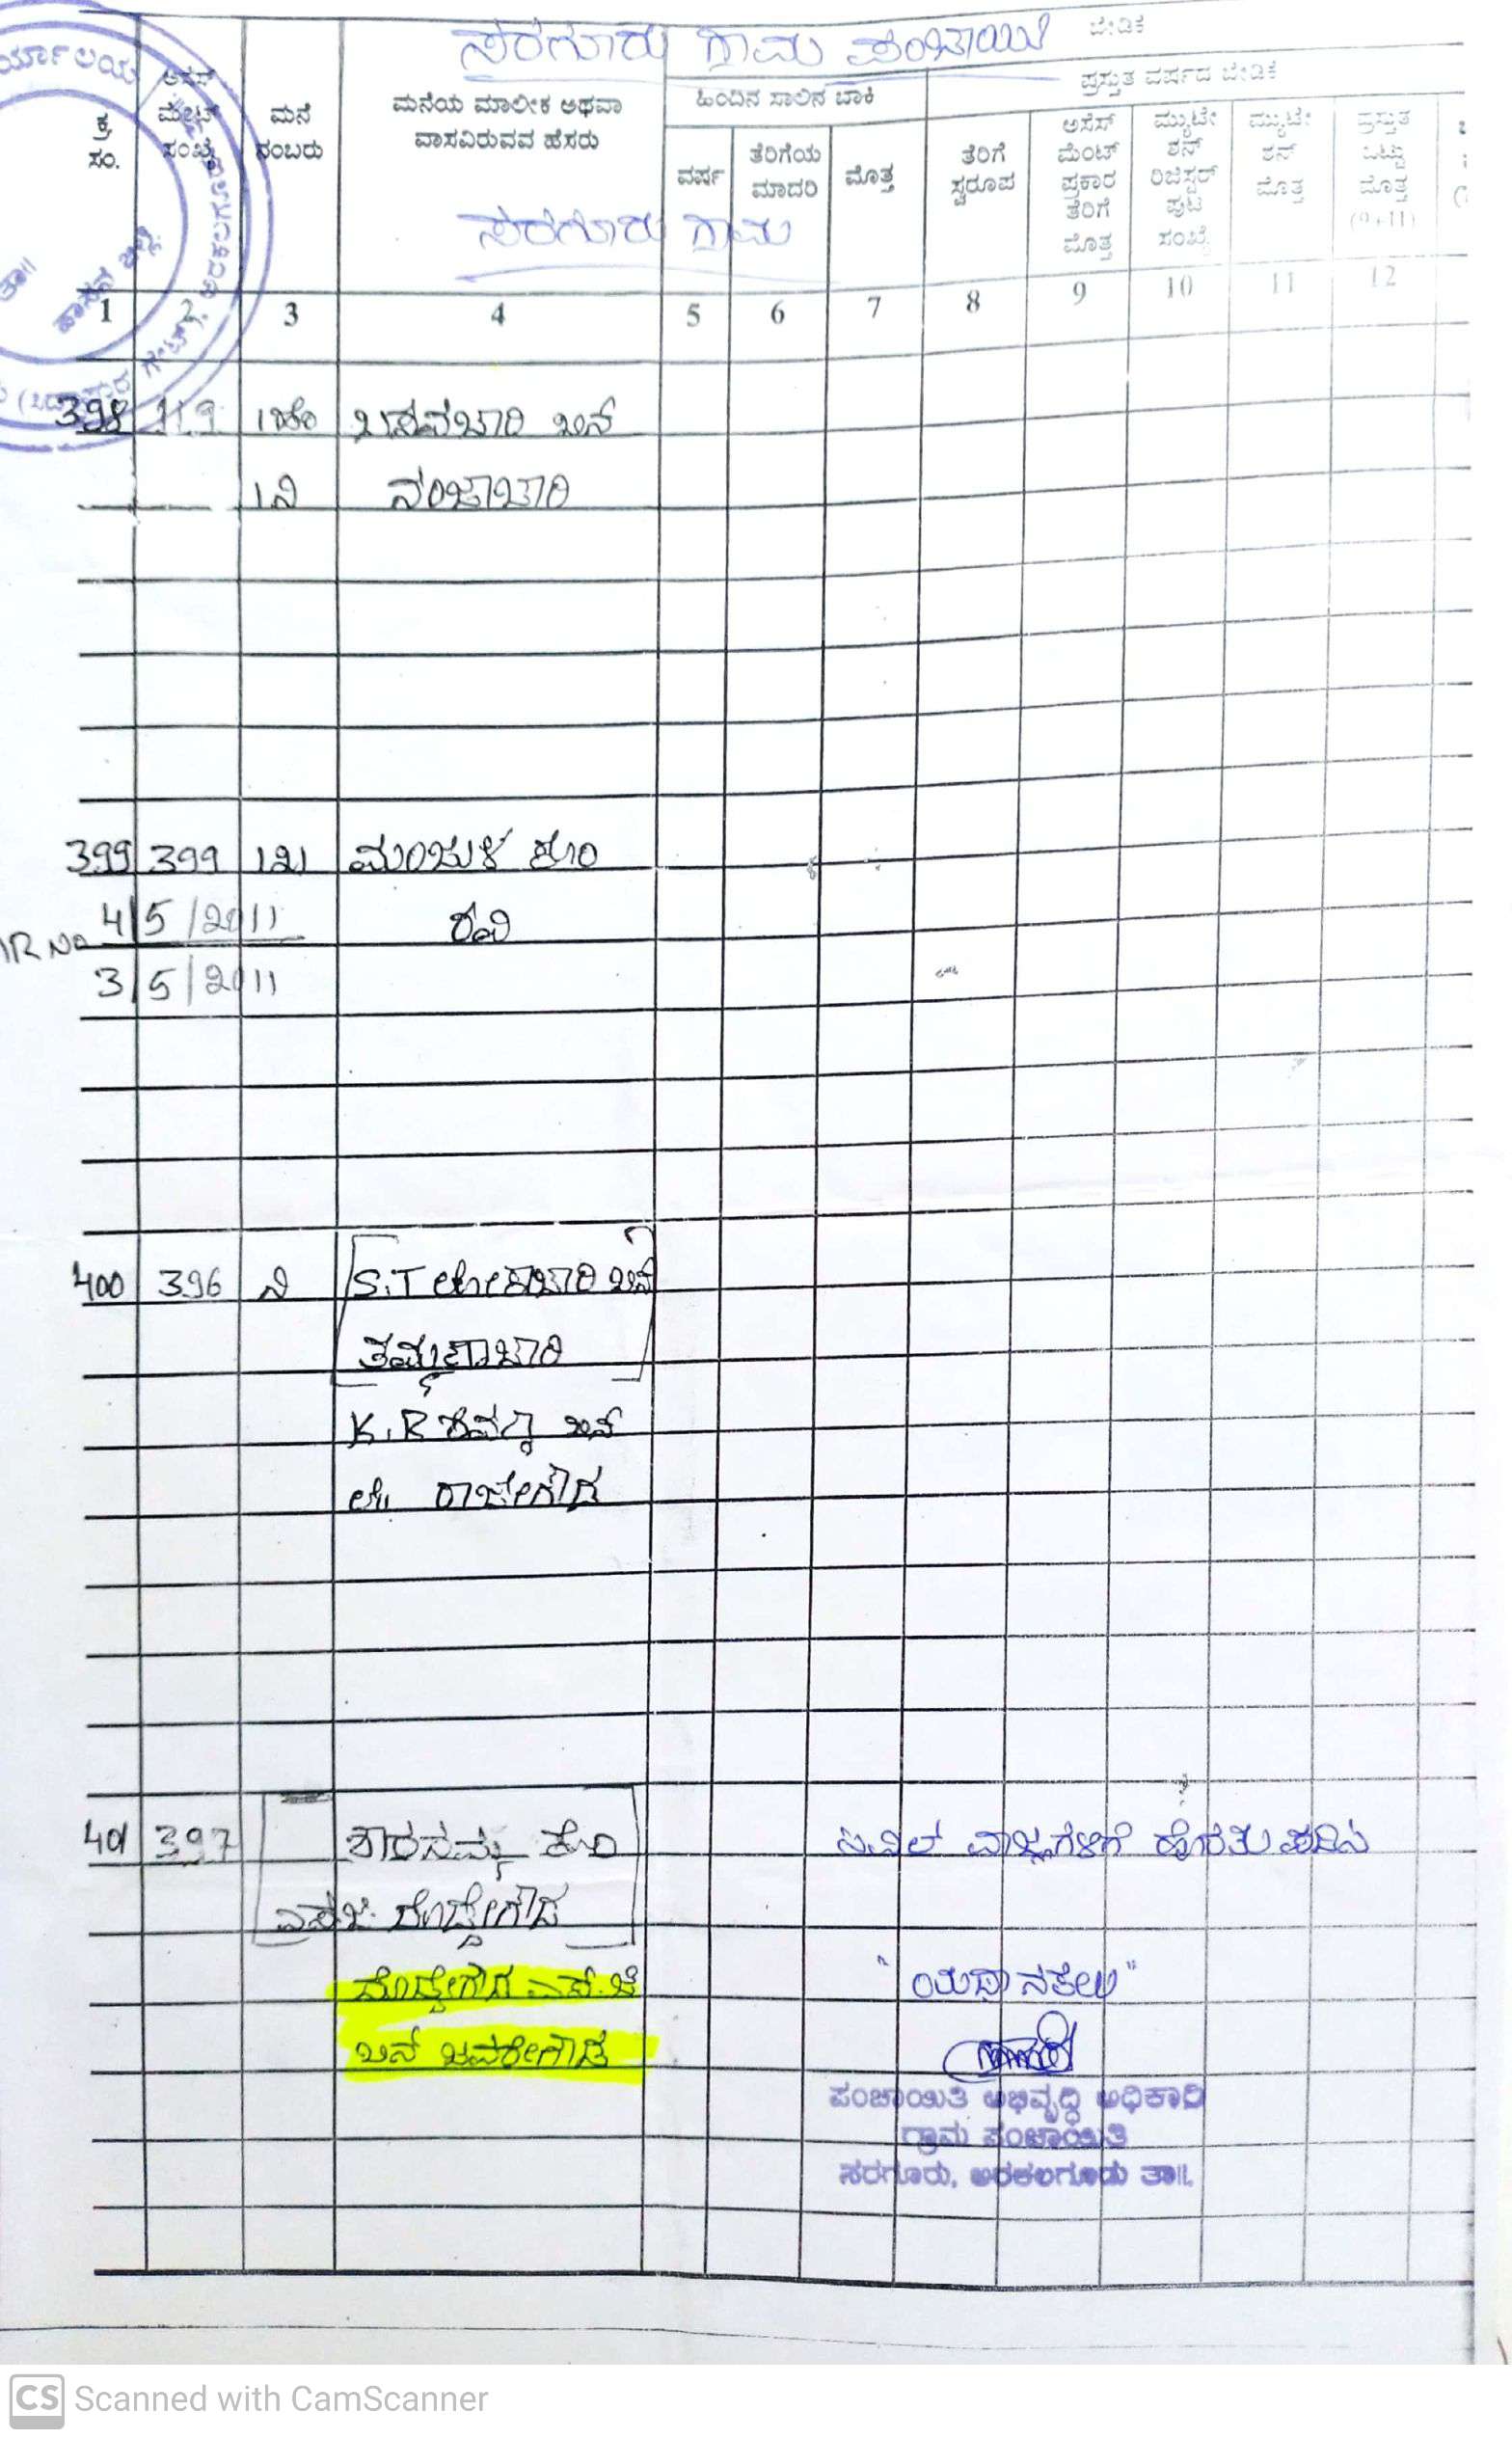 ಸರಗೂರು ಗ್ರಾಮ ಪಂಚಾಯಿತಿ
ಬೇಡಿಕೆ
ಕ್ರ. ಸಂ.
ಅಸೆಸ್ ಮೆಂಟ್ ಸಂಖ್ಯೆ
ಮನೆ ನಂಬರು
ಮನೆಯ ಮಾಲೀಕ ಅಥವಾ
ವಾಸವಿರುವವ ಹೆಸರು
ಹಿಂದಿನ ಸಾಲಿನ ಬಾಕಿ
ಪ್ರಸ್ತುತ ವರ್ಷದ ಬೇಡಿಕೆ
ವರ್ಷ
ತೆರಿಗೆಯ ಮಾದರಿ
ಮೊತ್ತ
ತೆರಿಗೆ ಸ್ವರೂಪ
ಅಸೆಸ್ ಮೆಂಟ್ ಪ್ರಕಾರ ತೆರಿಗೆ ಮೊತ್ತ
ಮ್ಯುಟೇ ಶನ್ ರಿಜಿಸ್ಟರ್ ಪುಟ ಸಂಖ್ಯೆ
ಮ್ಯುಟೇ ಶನ್ ಮೊತ್ತ
ಪ್ರಸ್ತುತ ಒಟ್ಟು ಮೊತ್ತ (9+11)
ಸರಗೂರು ಗ್ರಾಮ
1 2 3 4 5 6 7 8 9 10 11 12
398 119 ಬಸವಚಾರಿ ಬಿನ್
ನಂಜಾಚಾರಿ
399 399 ಮಂಜುಳ ಕೋಂ
4/5/2011 ರವಿ
3/5/2011
400 396 ನಿ S.T ಲೋಕಾಚಾರಿ ಬಿನ್
ತಮ್ಮಣ್ಣಾಚಾರಿ
K.R ಶಿವಣ್ಣ ಬಿನ್
ಲೇ. ರಾಜೇಗೌಡ
401 397 ಶಾರದಮ್ಮ ಕೋಂ
ಎಸ್.ಜೆ. ದೊಡ್ಡೇಗೌಡ
ದೊಡ್ಡೇಗೌಡ ಎಸ್.ಜೆ
ಬಿನ್ ಜವರೇಗೌಡ
ಸಿವಿಲ್ ವ್ಯಾಜ್ಯಗಳಿಗೆ ಹೊರತು ಪಡಿಸಿ
"ಯಥಾ ನಕಲು"
ಪಂಚಾಯಿತಿ ಅಭಿವೃದ್ಧಿ ಅಧಿಕಾರಿ
ಗ್ರಾಮ ಪಂಚಾಯಿತಿ
ಸರಗೂರು, ಅರಕಲಗೂಡು ತಾ||.
CS Scanned with CamScanner